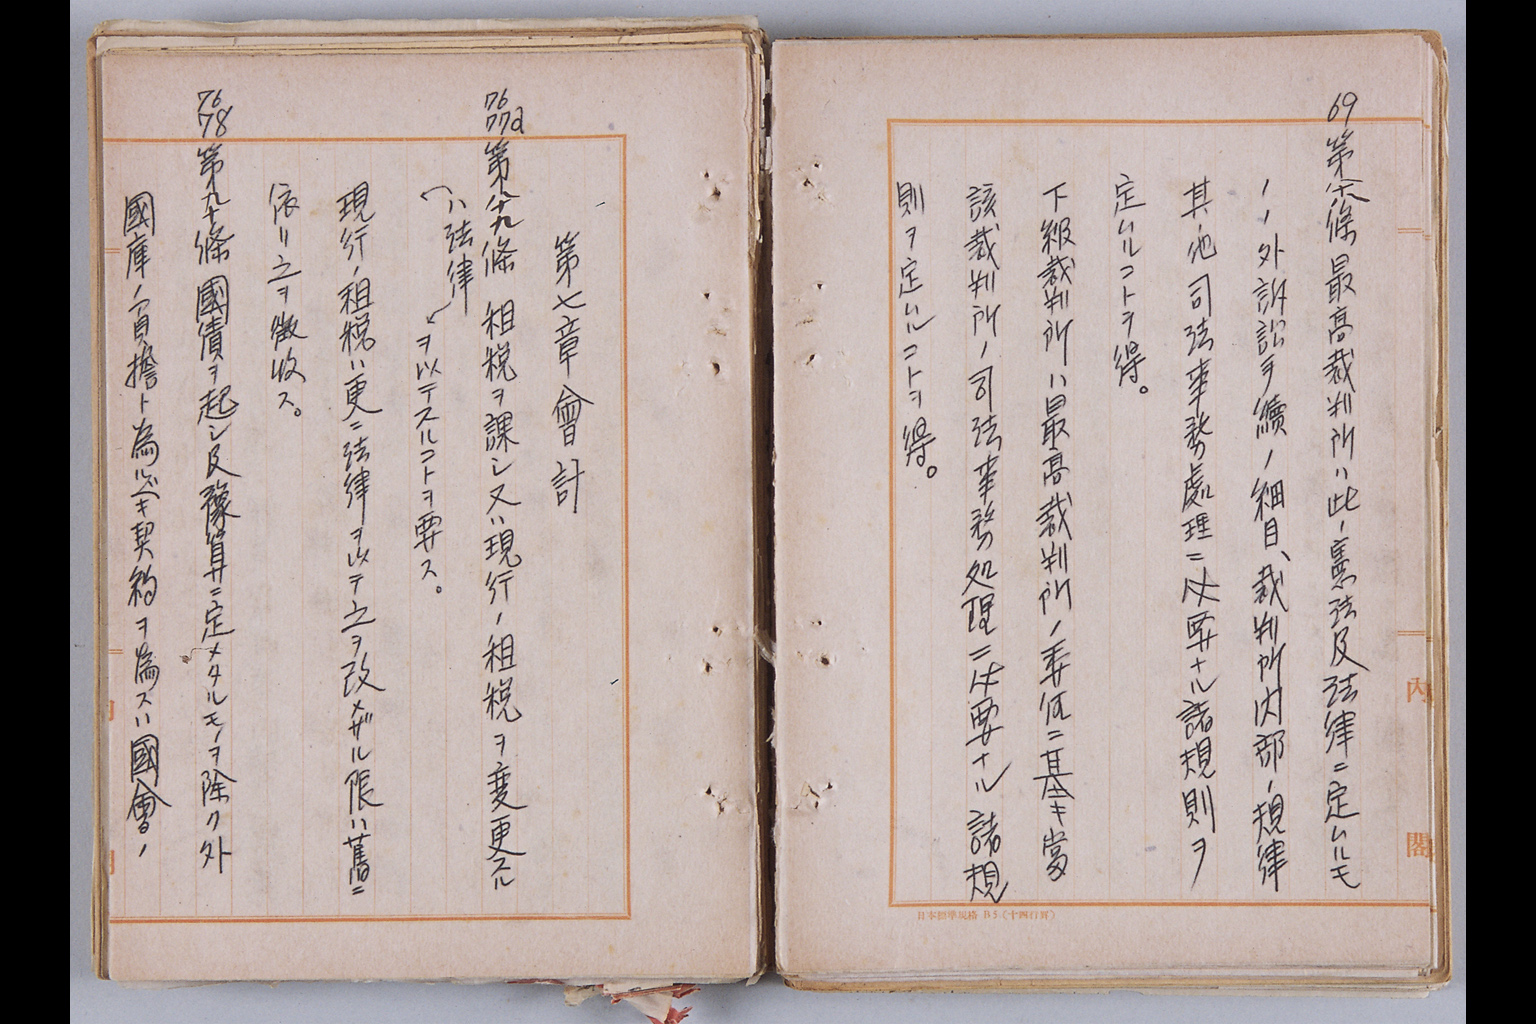 69
第六條 最高裁判所ハ此ノ憲法及法律ニ定ムルモ
ノノ外訴訟手續ノ細目、裁判所内部ノ規律
其ノ他司法事務處理ニ必要ナル諸規則ヲ
定ムルコトヲ得。
下級裁判所ハ最高裁判所ノ委任ニ基キ當
該裁判所ノ司法事務処理ニ必要ナル諸規
則ヲ定ムルコトヲ得。
內閣
日本標準規格 B5(十四行罫)
第七章 會計
76
77a
第八十九條 租税ヲ課シ又ハ現行ノ租税ヲ変更スル
ハ法律
ヲ以テスルコトヲ要ス。
現行ノ租税ハ更ニ法律ヲ以テ之ヲ改メザル限ハ舊ニ
依リ之ヲ徴收ス。
76
78
第九十條 國債ヲ起シ及豫算ニ定メタルモノヲ除ク外
國庫ノ負擔ト為ルベキ契約ヲ為スハ國會ノ